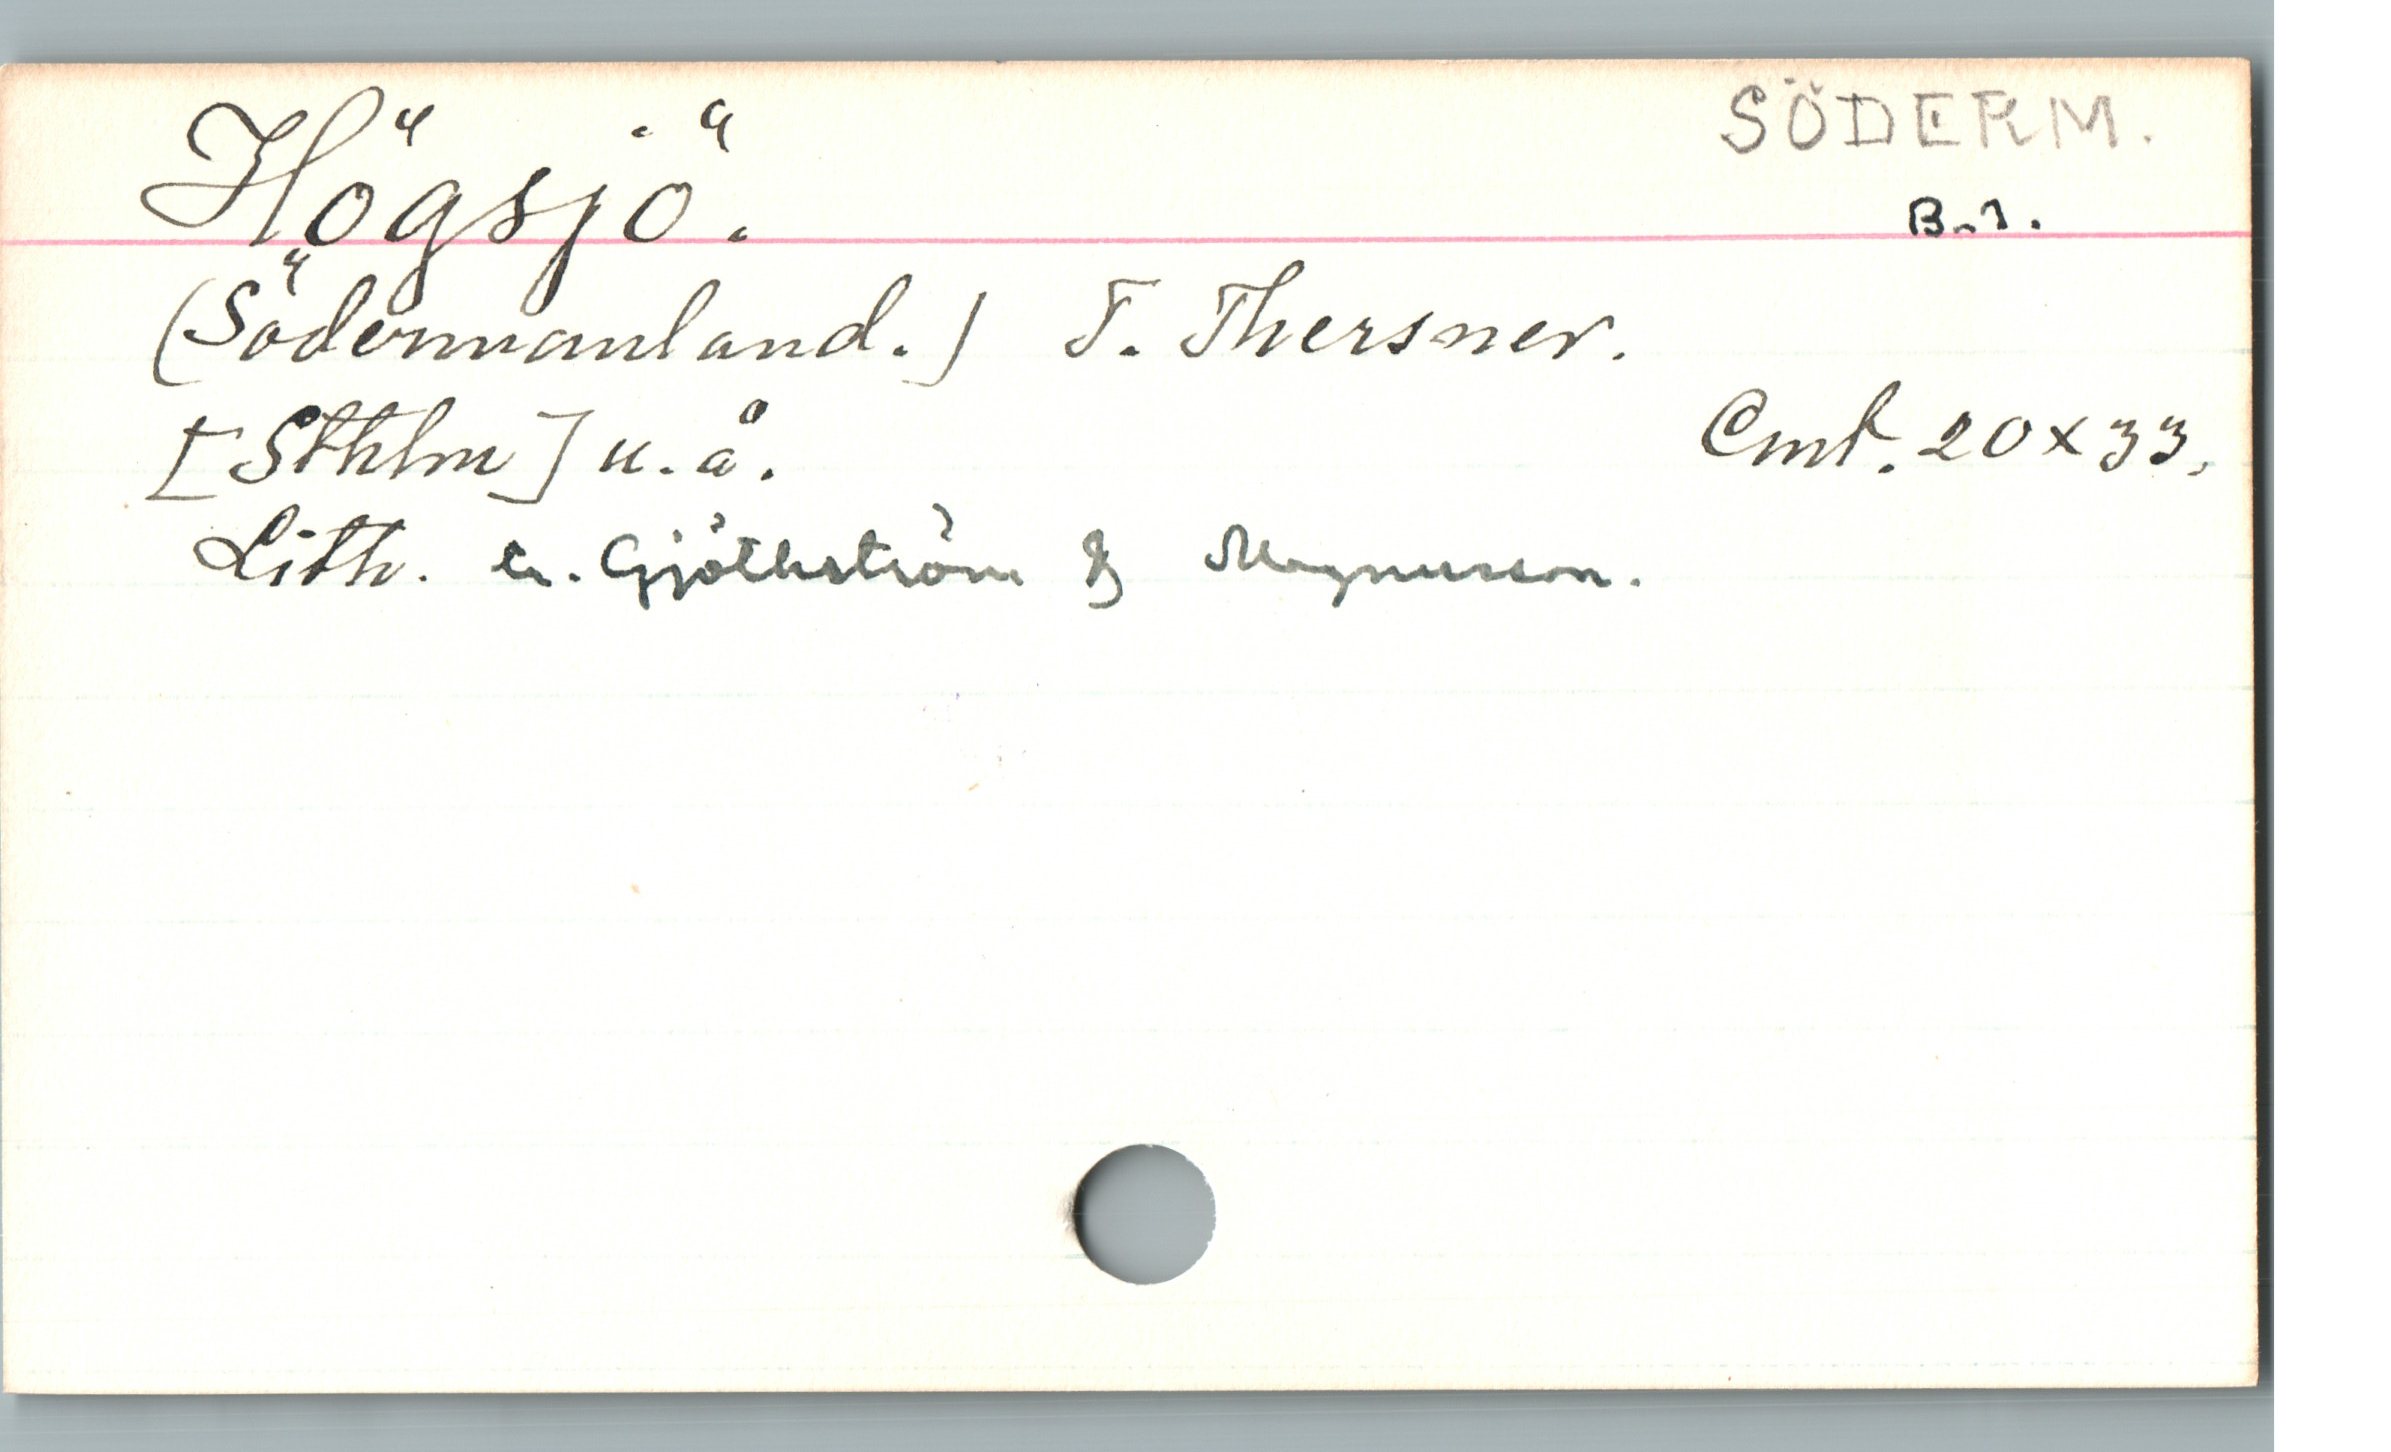 Högsjö.
SÖDERM.
B.1.
(Södermanland.) T. Thersner.
[Sthlm] u.å.
Cmt. 20x33.
Lith. Gjöthström & Magnusson.